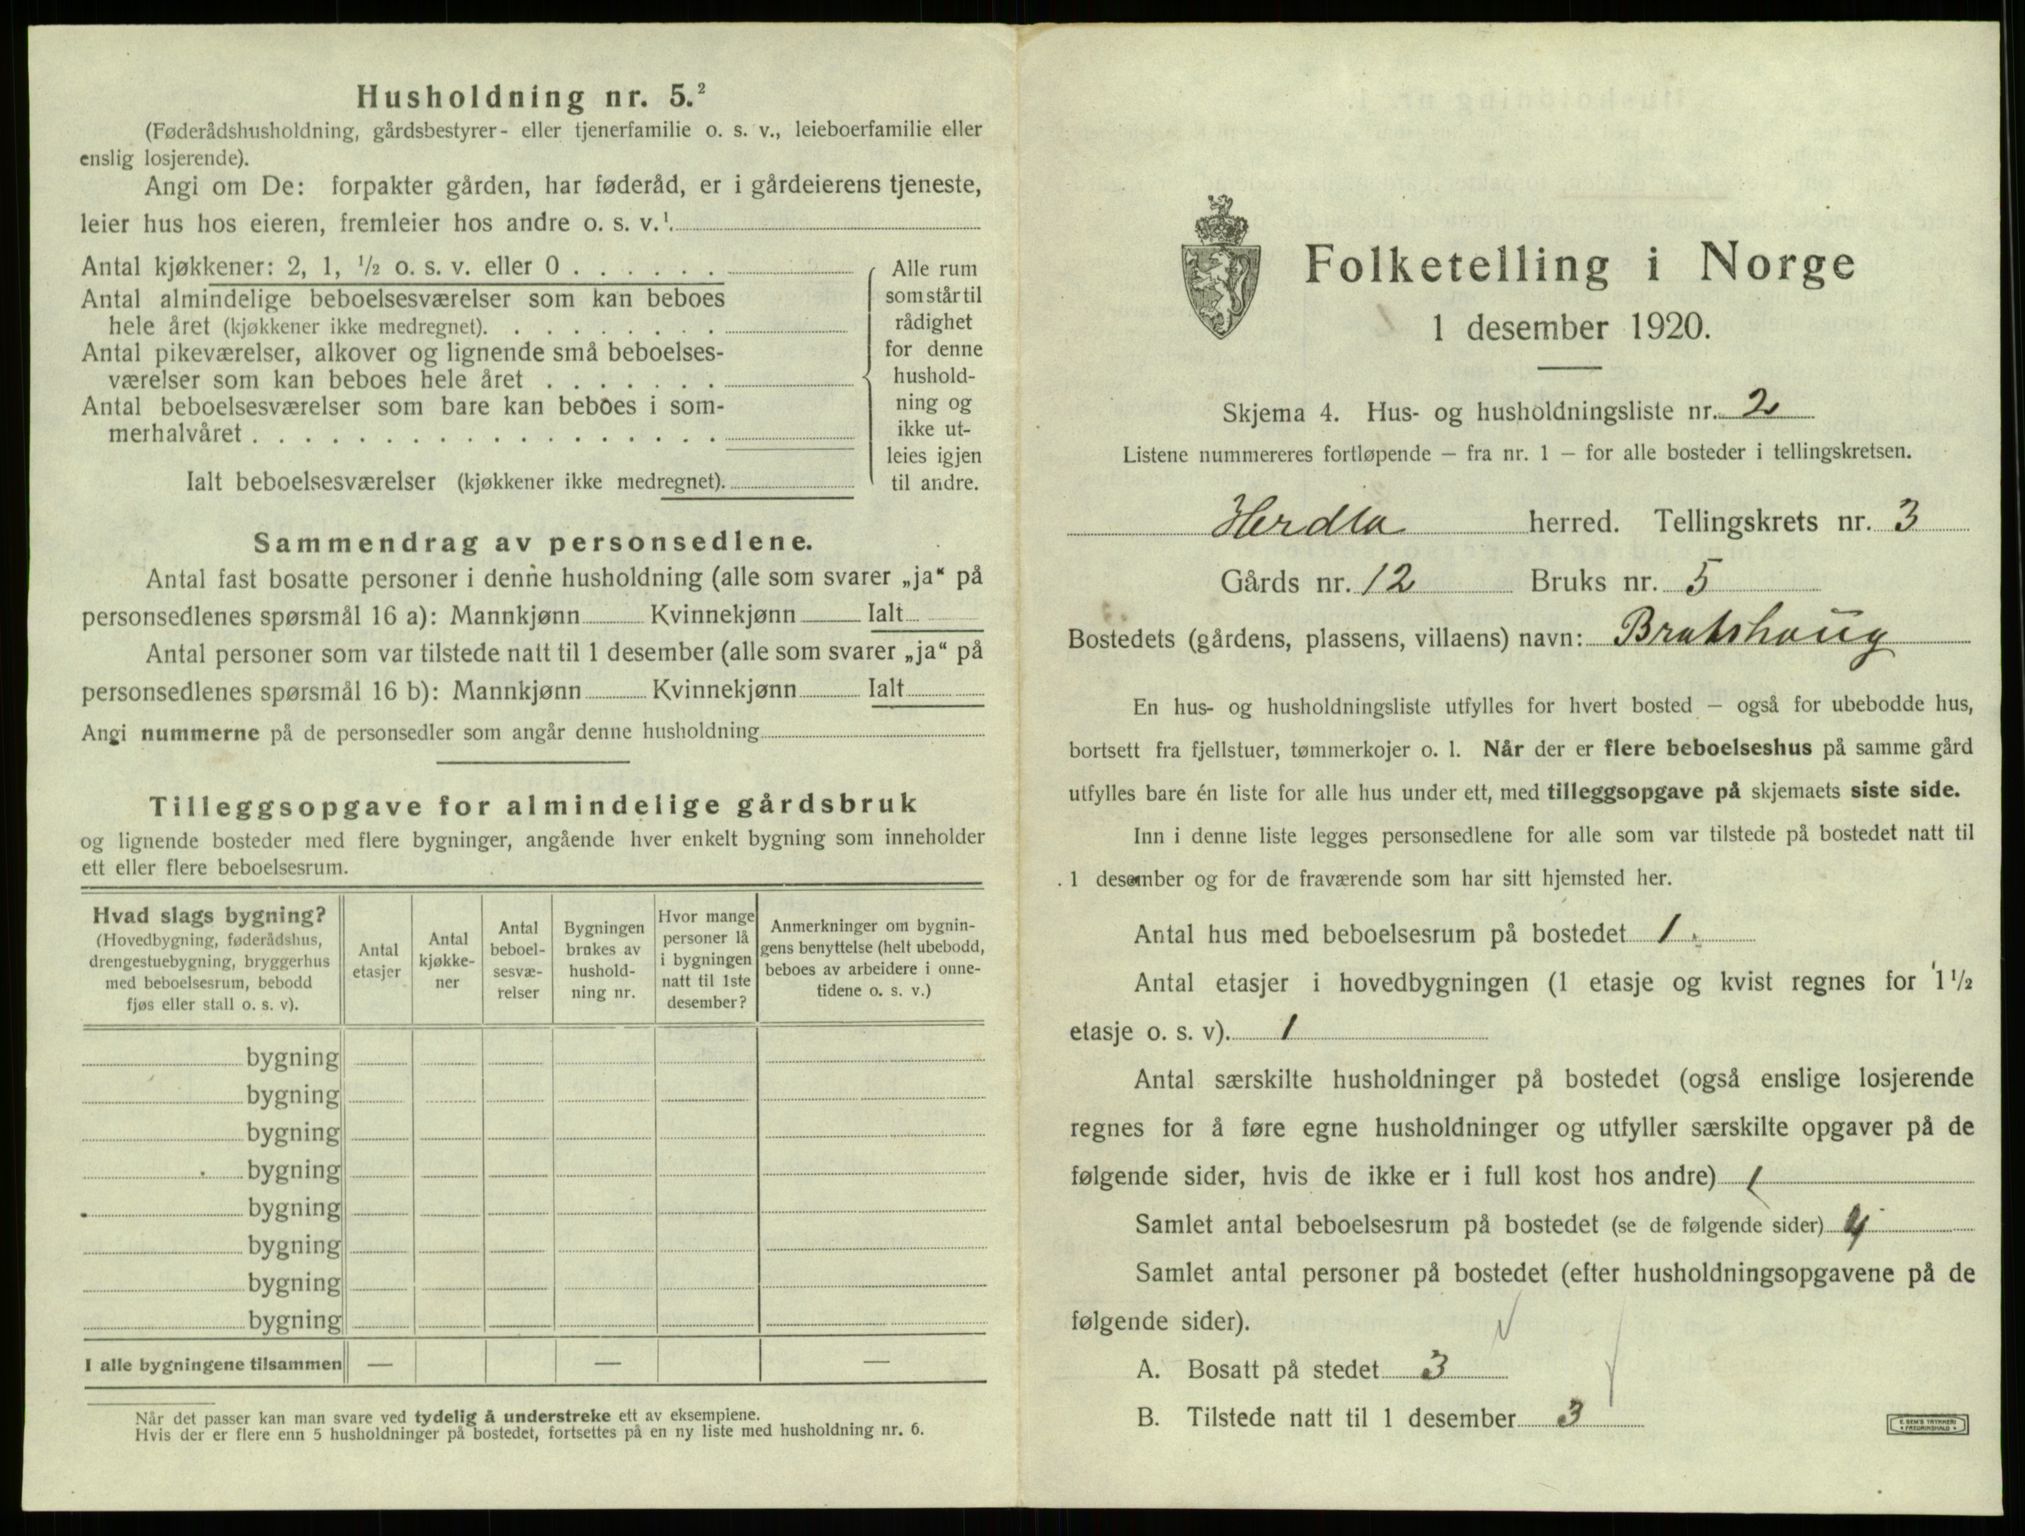 Husholdning nr. 5.²
(Føderådshusholdning, gårdsbestyrer- eller tjenerfamilie o. s. v., leieboerfamilie eller
enslig losjerende).
Angi om De: forpakter gården, har føderåd, er i gårdeierens tjeneste,
leier hus hos eieren, fremleier hos andre o. s. v.¹
Antal kjøkkener: 2, 1, ½ o. s. v. eller 0 . . . . . .
Antal almindelige beboelsesværelser som kan beboes
hele året (kjøkkener ikke medregnet). . . . . . . . .
Antal pikeværelser, alkover og lignende små beboelses-
værelser som kan beboes hele året . . . . . . .
Antal beboelsesværelser som bare kan beboes i som-
merhalvåret . . . . . . . . . . . . . . . . . .
Ialt beboelsesværelser (kjøkkener ikke medregnet).
Alle rum
som står til
rådighet
for denne
hushold-
ning og
ikke ut-
leies igjen
til andre.
Sammendrag av personsedlene.
Antal fast bosatte personer i denne husholdning (alle som svarer „ja“ på
personsedlenes spørsmål 16 a): Mannkjønn Kvinnekjønn Ialt
Antal personer som var tilstede natt til 1 desember (alle som svarer „ja“ på
personsedlenes spørsmål 16 b): Mannkjønn Kvinnekjønn Ialt
Angi nummerne på de personsedler som angår denne husholdning
Tilleggsopgave for almindelige gårdsbruk
og lignende bosteder med flere bygninger, angående hver enkelt bygning som inneholder
ett eller flere beboelsesrum.
Hvad slags bygning?
(Hovedbygning, føderådshus,
drengestuebygning, bryggerhus
med beboelsesrum, bebodd
fjøs eller stall o. s. v).
Antal
etasjer
Antal
kjøkke-
ner
Antal
beboel-
sesvæ-
relser
Bygningen
brukes av
hushold-
ning nr.
Hvor mange
personer lå
i bygningen
natt til 1ste
desember?
Anmerkninger om bygnin-
gens benyttelse (helt ubebodd,
beboes av arbeidere i onne-
tidene o. s. v.)
bygning
bygning
bygning
bygning
bygning
bygning
bygning
bygning
I alle bygningene tilsammen — — —
Når det passer kan man svare ved tydelig å understreke ett av eksemplene.
Hvis der er flere enn 5 husholdninger på bostedet, fortsettes på en ny liste med husholdning nr. 6.
Folketelling i Norge
1 desember 1920.
Skjema 4. Hus- og husholdningsliste nr. 2
Listene nummereres fortløpende — fra nr. 1 — for alle bosteder i tellingskretsen.
Herdla herred. Tellingskrets nr. 3
Gårds nr. 12 Bruks nr. 5
Bostedets (gårdens, plassens, villaens) navn: Bratshaug
En hus- og husholdningsliste utfylles for hvert bosted — også for ubebodde hus,
bortsett fra fjellstuer, tømmerkojer o. l. Når der er flere beboelseshus på samme gård
utfylles bare én liste for alle hus under ett, med tilleggsopgave på skjemaets siste side.
Inn i denne liste legges personsedlene for alle som var tilstede på bostedet natt til
1 desember og for de fraværende som har sitt hjemsted her.
Antal hus med beboelsesrum på bostedet 1.
Antal etasjer i hovedbygningen (1 etasje og kvist regnes for 1½
etasje o. s. v). 1
Antal særskilte husholdninger på bostedet (også enslige losjerende
regnes for å føre egne husholdninger og utfyller særskilte opgaver på de
følgende sider, hvis de ikke er i full kost hos andre) 1
Samlet antal beboelsesrum på bostedet (se de følgende sider) 4
Samlet antal personer på bostedet (efter husholdningsopgavene på de
følgende sider).
A. Bosatt på stedet 3
B. Tilstede natt til 1 desember 3
E. SEM'S TRYKKERI
FREDRIKSHALD